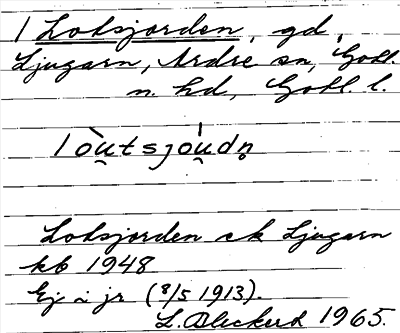 1 Lotsjorden, gd,
Ljugarn, Ardre sn, Gotl.
n. hd, Gotl. l.
lòu̯tsjòu̯dn̥
Lotsjorden ek Ljugarn
kb 1948
Ej i jr (8/5 1913).
L. Bleckert 1965.